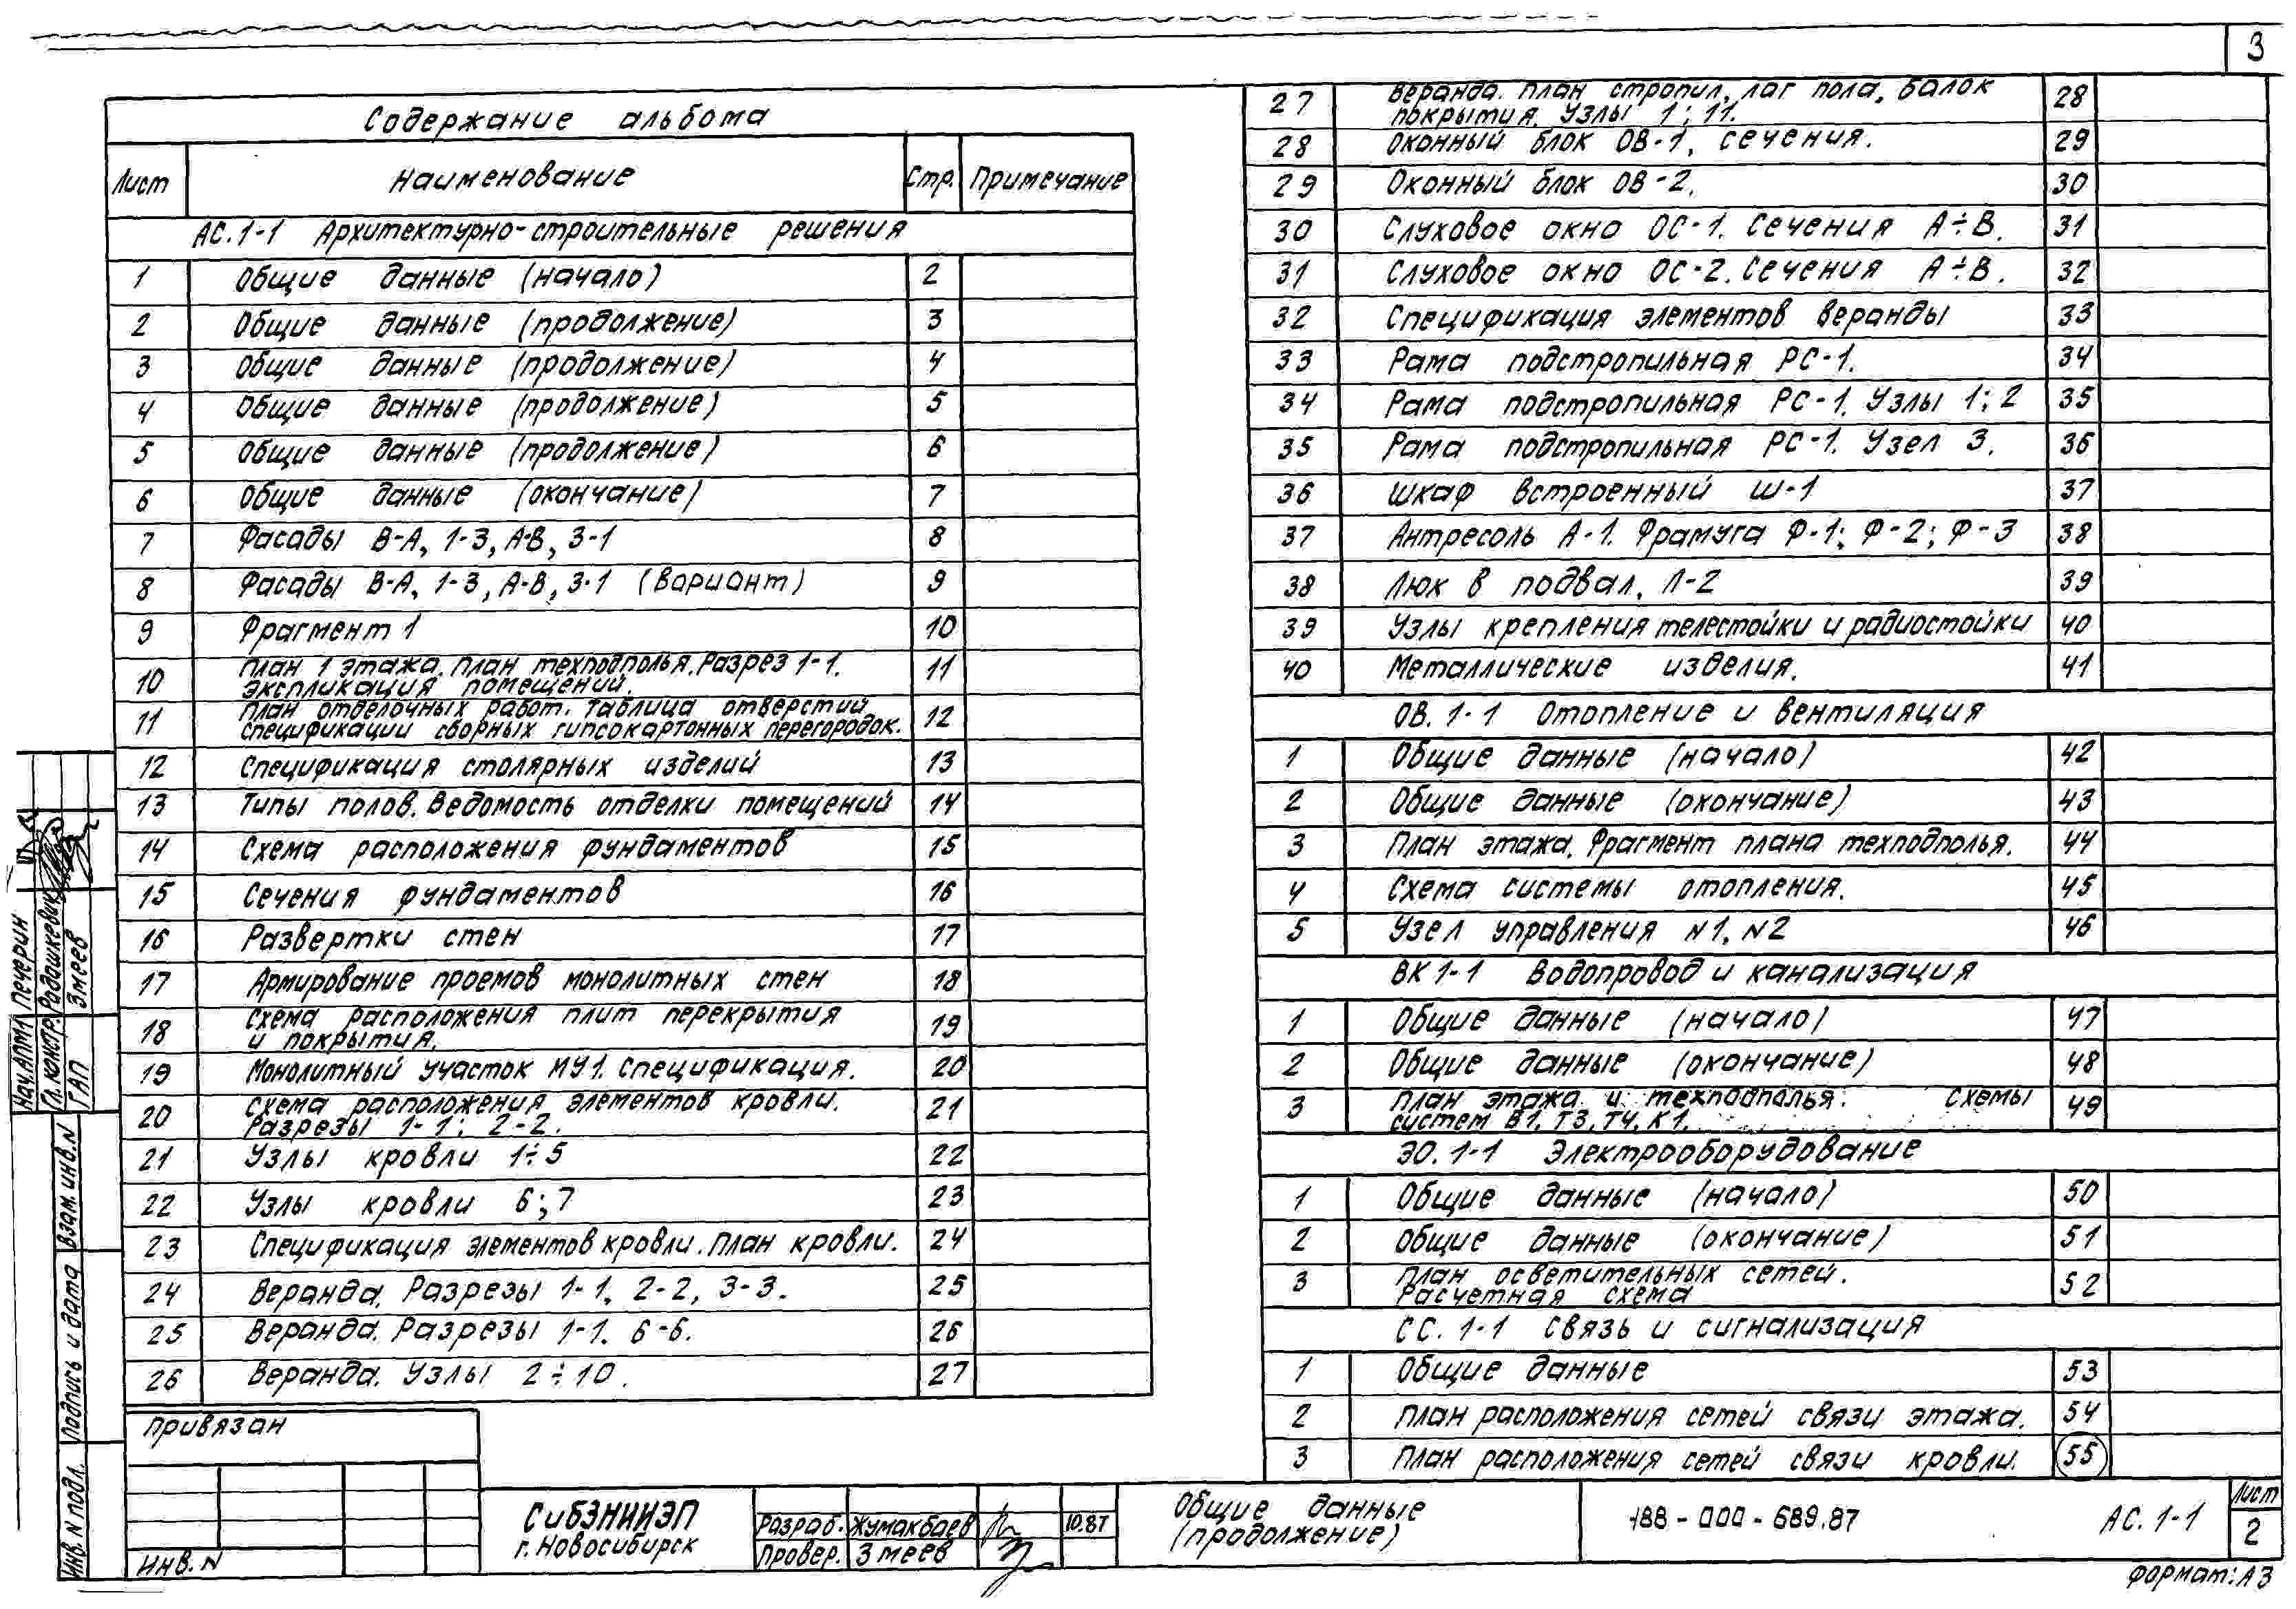 3
Содержание альбома
Лист Наименование Стр. Примечание
АС.1-1 Архитектурно-строительные решения
1 Общие данные (начало) 2
2 Общие данные (продолжение) 3
3 Общие данные (продолжение) 4
4 Общие данные (продолжение) 5
5 Общие данные (продолжение) 6
6 Общие данные (окончание) 7
7 Фасады В-А, 1-3, А-В, 3-1 8
8 Фасады В-А, 1-3, А-В, 3-1 (вариант) 9
9 Фрагмент 1 10
10 План 1 этажа. План техподполья. Разрез 1-1. 11
Экспликация помещений.
11 План отделочных работ. Таблица отверстий 12
Спецификации сборных гипсокартонных перегородок.
12 Спецификация столярных изделий 13
13 Типы полов. Ведомость отделки помещений 14
14 Схема расположения фундаментов 15
15 Сечения фундаментов 16
16 Развертки стен 17
17 Армирование проемов монолитных стен 18
18 Схема расположения плит перекрытия 19
и покрытия.
19 Монолитный участок МУ1. Спецификация. 20
20 Схема расположения элементов кровли. 21
Разрезы 1-1; 2-2.
21 Узлы кровли 1÷5 22
22 Узлы кровли 6; 7 23
23 Спецификация элементов кровли. План кровли. 24
24 Веранда. Разрезы 1-1, 2-2, 3-3. 25
25 Веранда. Разрезы 1-1. 6-6. 26
26 Веранда. Узлы 2÷10. 27
27 Веранда. План стропил, лаг пола, балок 28
покрытия. Узлы 1; 11.
28 Оконный блок ОВ-1, сечения. 29
29 Оконный блок ОВ-2. 30
30 Слуховое окно ОС-1. Сечения А÷В. 31
31 Слуховое окно ОС-2. Сечения А÷В. 32
32 Спецификация элементов веранды 33
33 Рама подстропильная РС-1. 34
34 Рама подстропильная РС-1. Узлы 1; 2 35
35 Рама подстропильная РС-1. Узел 3. 36
36 Шкаф встроенный Ш-1 37
37 Антресоль А-1. Фрамуга Ф-1; Ф-2; Ф-3 38
38 Люк в подвал, Л-2 39
39 Узлы крепления телестойки и радиостойки 40
40 Металлические изделия. 41
ОВ. 1-1 Отопление и вентиляция
1 Общие данные (начало) 42
2 Общие данные (окончание) 43
3 План этажа. Фрагмент плана техподполья. 44
4 Схема системы отопления. 45
5 Узел управления N1, N2 46
ВК 1-1 Водопровод и канализация
1 Общие данные (начало) 47
2 Общие данные (окончание) 48
3 План этажа и техподполья. Схемы 49
систем В1, Т3, Т4, К1.
ЭО. 1-1 Электрооборудование
1 Общие данные (начало) 50
2 Общие данные (окончание) 51
3 План осветительных сетей. 52
Расчетная схема
СС. 1-1 Связь и сигнализация
1 Общие данные 53
2 План расположения сетей связи этажа. 54
3 План расположения сетей связи кровли. 55
Нач. АПМ1 Печерин
Гл. констр. Радашкевич
ГАП Змеев
Взам. инв. N
Подпись и дата
Инв. N подл.
Привязан
Инв. N
СибЗНИИЭП
г. Новосибирск
Разраб. Жумакбаев 10.87
Провер. Змеев
Общие данные
(продолжение)
188-000-689.87
АС. 1-1
Лист
2
Формат: А3